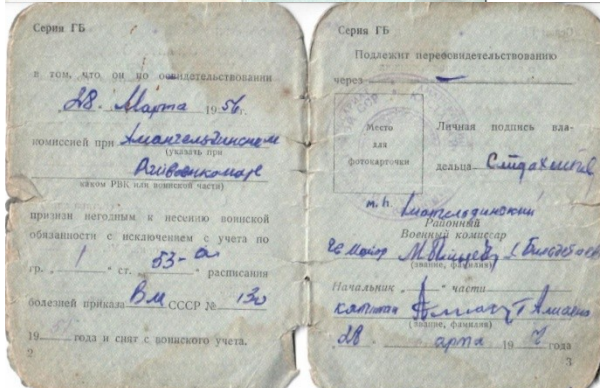 Серия ГБ
в том, что он по освидетельствовании
„28" Марта 1956 г.
комиссией при Амангельдинском
(указать при
Райвоенкомате
каком РВК или воинской части)
признан негодным к несению воинской
обязанности с исключением с учета по
гр. 1 ст. 53-а расписания
болезней приказа ВМ СССР № 130
19 года и снят с воинского учета.
2
Серия ГБ
Подлежит переосвидетельствованию
через —
Место
для
фотокарточки
Личная подпись вла-
дельца
м. п.
Амангельдинский
Районный
Военный комиссар
майор
(звание, фамилия)
Начальник части
капитан
(звание, фамилия)
28 марта 19 года
3